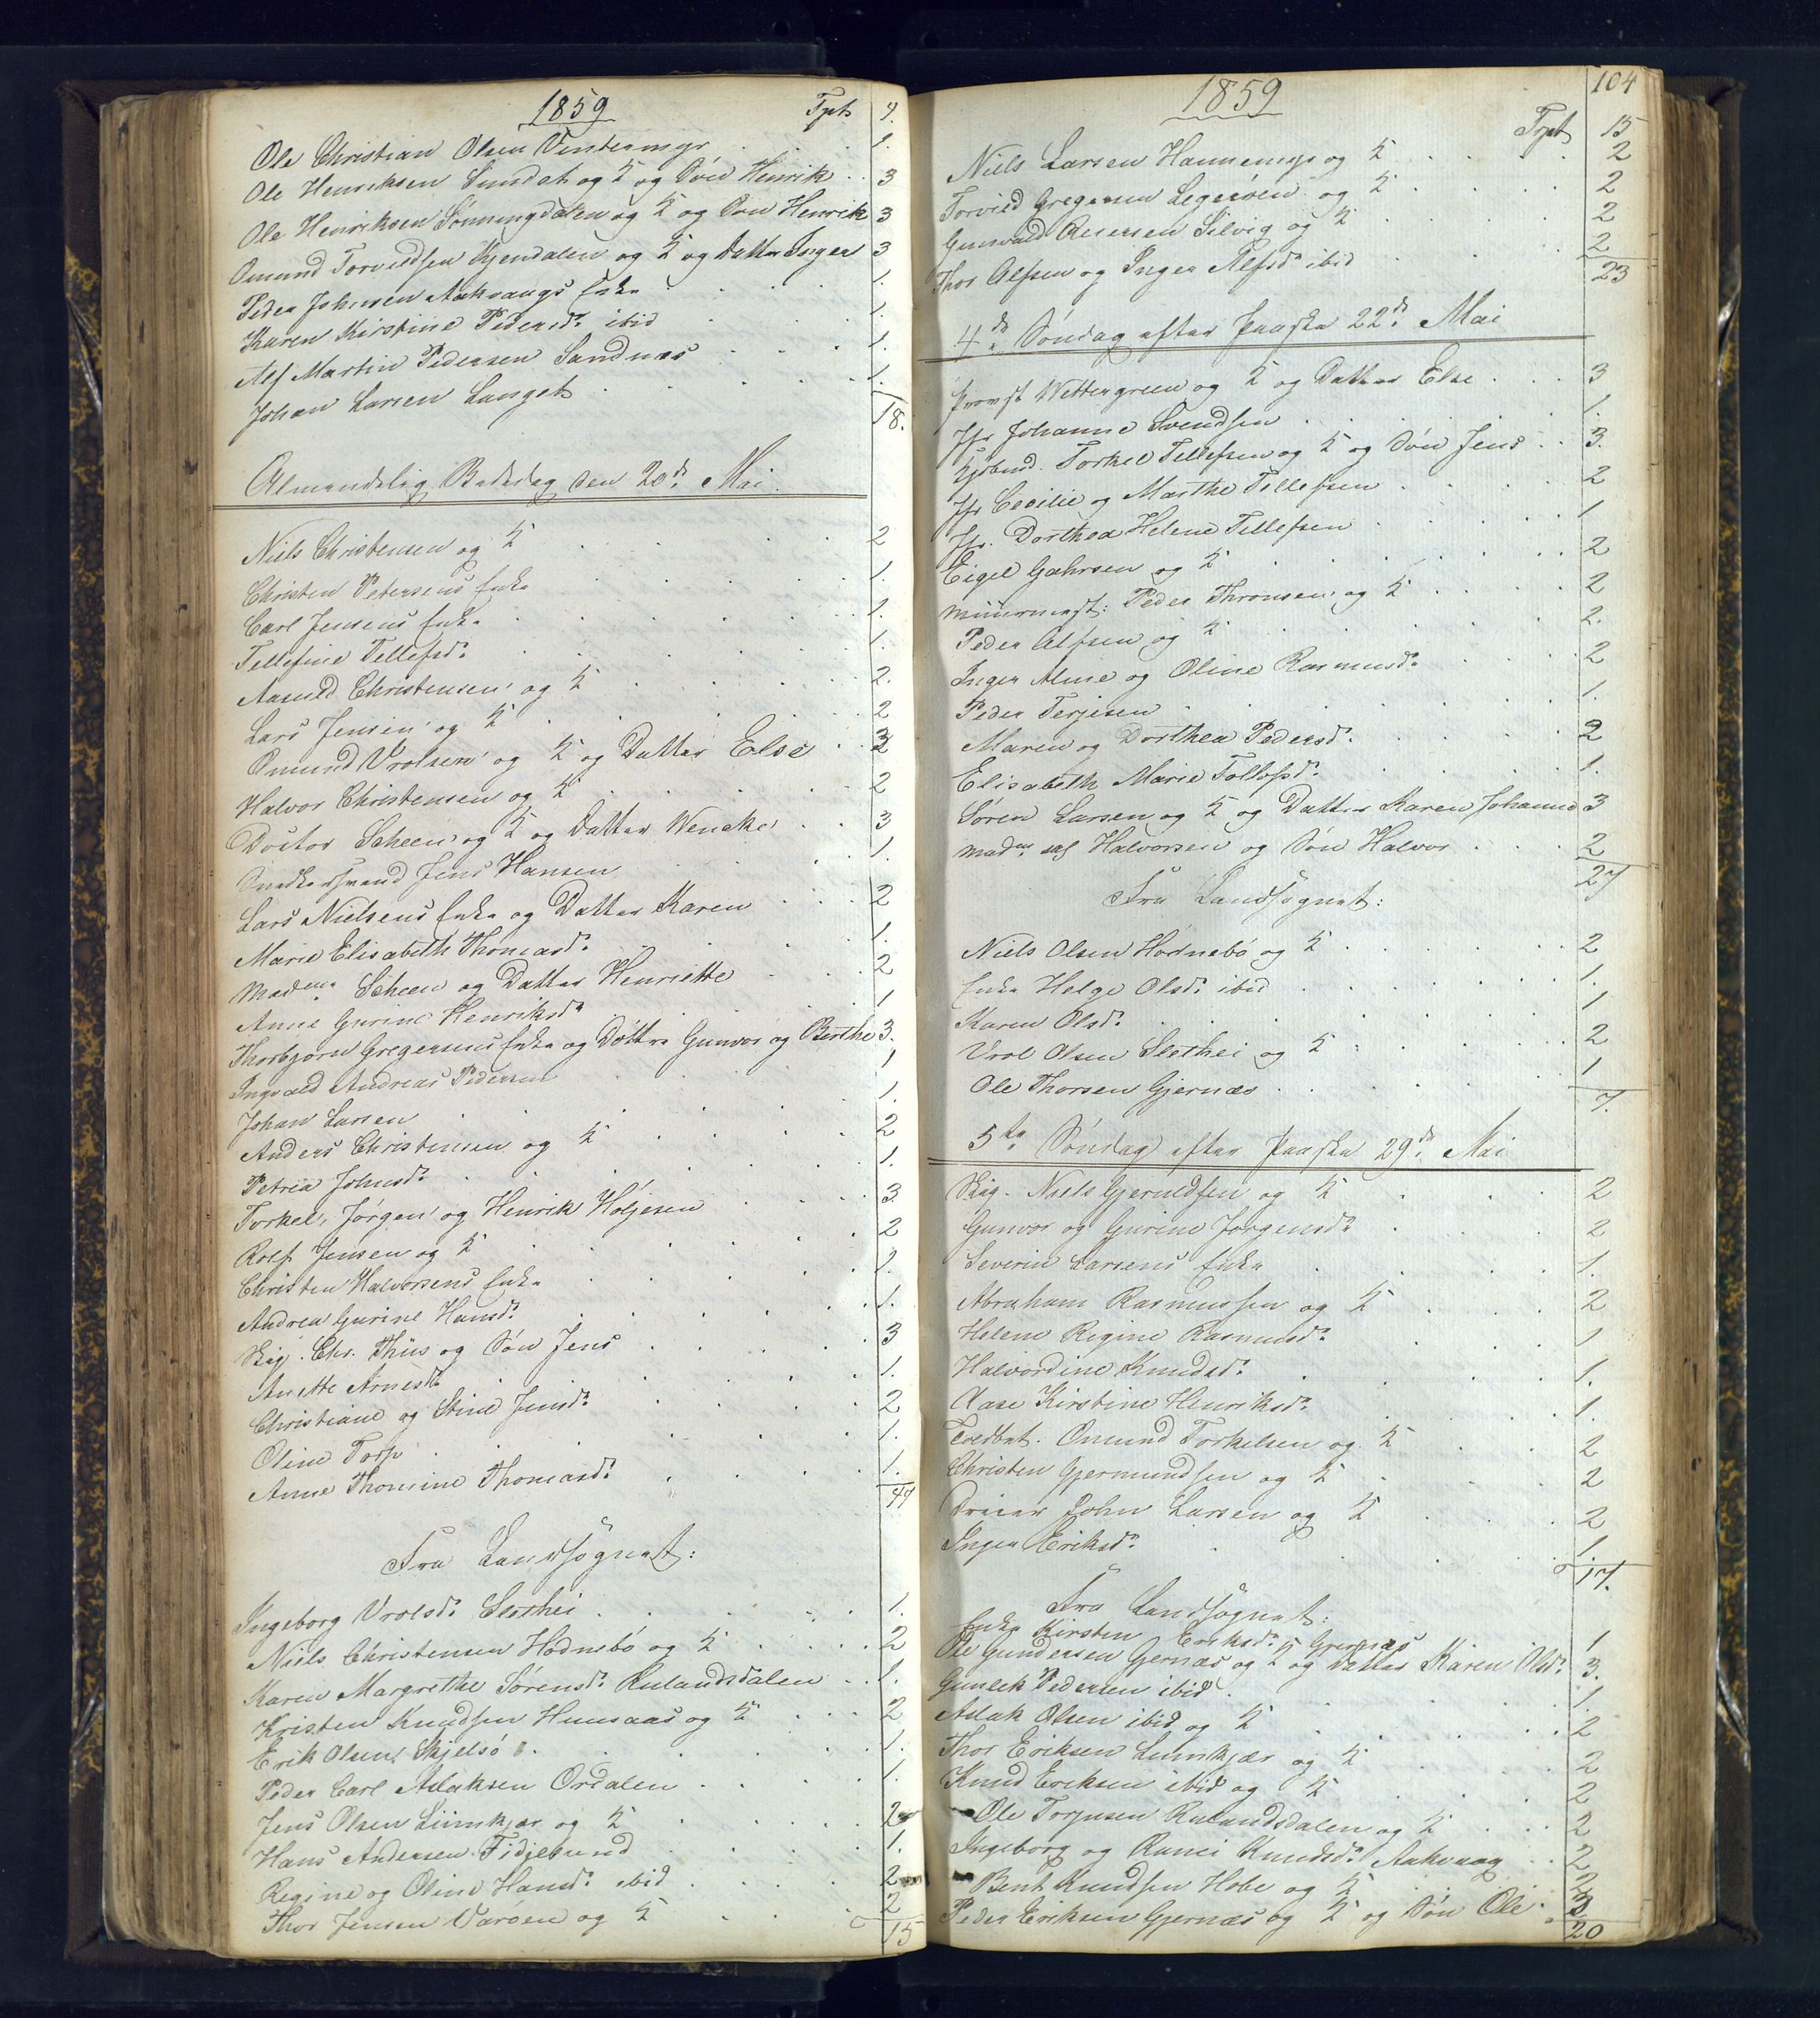 1859
Tpt 4.
Ole Christian Olsen Vintermyr . . . 1.
Ole Henriksen Sundet og K og Søn Henrik . . 3
Ole Henriksen Sønningdalen og K og Søn Henrik 3
Omund Torvildsen Kjendalen og K og Datter Inger 3
Peder Johnsen Aakvaags Enke . . . . 1.
Karen Kirstine Pedersd: ibid . . . 1.
Alf Martin Pedersen Sandnæs . . . 1.
Johan Larsen Langet . . . . . 1.
18.
Almindelig Bededag den 20de Mai.
Niels Christensen og K . . . . 2
Christen Petersens Enke . . . . 1.
Carl Jensens Enke . . . . . 1.
Tellefine Tellefsd: . . . . . 1.
Aanuld Christensen og K . . . . . 2.
Lars Jensen og K . . . . . 2
Omund Vrolsen og K og Datter Else . . 3
Halvor Christensen og K . . . . . 2
Doctor Scheen og K og Datter Wencke . . 3
Snedkersvend Jens Hansen . . . 1.
Lars Nielsens Enke og Datter Karen . . . 2
Marie Elisabeth Thomasd: . . . . 1.
Madme Scheen og Datter Henriette . . . 2
Anne Gurine Henriksd: . . . . 1
Thorbjørn Gregersens Enke og Døttre Gunvor og Berthe 3.
Ingvald Andreas Pedersen . . . . 1
Johan Larsen . . . . . . 1.
Anders Christensen og K . . . . 2
Petrea Johnsd: . . . . . . 1.
Torkel, Jørgen og Henrik Høljesen . . . 3
Rolf Jensen og K . . . . . . 2
Christen Halvorsens Enke . . . . . 1.
Andrea Gurine Hansd: . . . . . 1.
Skip. Chr. Thiis og Søn Jens . . . . 3
Anette Arnesd: . . . . . . 1.
Christiane og Stine Jensd: . . . . 2
Oline Torp . . . . . . 1.
Anne Thomine Thomasd: . . . . 1.
49
Fra Landsognet:
Ingeborg Vrolsd: Slethei . . . . . 1.
Niels Christensen Hødnebø og K . . . . 2
Karen Margrethe Sørensd: Rulandsdalen . . 1.
Kristen Knudsen Humaas og K . . . 2
Erik Olsen Skjelsø . . . . . 1.
Peder Carl Aslaksen Ordalen . . . . 1.
Jens Olsen Liinkjær og K . . . . . 2
Hans Andersen Fidjetund . . . . 1.
Regine og Oline Hansd: ibid . . . . 2
Thor Jensen Varøen og K . . . . 2
15
104
1859
Tpt 15
Niels Larsen Hannemyr og K . . . . 2
Torvild Gregersen Legeröen og K . . . . 2
Gunvald Aanensen Silvig og K . . . . 2
Thor Alfsen og Inger Alfsd: ibid . . . . 2
23
4de Søndag efter Paaske 22de Mai
Provst Wettergreen og K og Datter Else . . . 3
Jfr Johanne Svendsen . . . . . 1.
Kjøbmd. Torkel Tellefsen og K og Søn Jens . . 3.
Jfr Cecilie og Marthe Tellefsen . . . . 2
Jfr. Dorthea Helene Tellefsen . . . . . 1
Eigel Gahrsen og K . . . . . . 2
Muurmest: Peder Thronsen og K . . . . 2
Peder Alfsen og K . . . . . . 2.
Inger Aline og Oline Rasmusd: . . . . 2
Peder Terjesen . . . . . . 1.
Maren og Dorthea Pedersd: . . . . . 2
Elisabeth Marie Tollofsd: . . . . . 1.
Søren Larsen og K og Datter Karen Johanne 3
Madme sal Halvorsen og Søn Halvor . . . 2
27
Fra Landsognet:
Niels Olsen Hødnebø og K . . . . . . 2
Enke Helge Olsd: ibid . . . . . . 1.
Karen Olsd: . . . . . . . 1
Vrol Olsen Slethei og K . . . . . 2
Ole Thorsen Gjernæs . . . . . . 1
7.
5te Søndag efter Paaske 29de Mai
Skip. Niels Gjeruldsen og K . . . 2
Gunvor og Gurine Jørgensd: . . . . 2
Severin Larsens Enke . . . . . 1.
Abraham Rasmussen og K . . . 2
Helene Regine Rasmusd: . . . . 1
Halvordine Knudsd: . . . . . 1.
Aase Kirstine Henriksd: . . . . 1.
Toldbet. Omund Torkelsen og K . . . 2
Christen Gjermundsen og K . . . 2
Dreier John Larsen og K . . . 2
Inger Eriksd: . . . . . . 1.
17.
Fra Landsognet:
Enke Kirsten Eriksd: Gjernæs . . . 1
Ole Gundersen Gjernæs og K og Datter Karen Olsd: 3.
Gunlek Pedersen ibid . . . . . . 1.
Aslak Olsen ibid og K . . . . . 2
Thor Eriksen Liinkjær og K . . . . 2
Knud Eriksen ibid og K . . . . . 2
Ole Torjusen Rulandsdalen og K . . . 2
Ingeborg og Ranei Knudsd: Aakvaag . . 2
Bent Knudsen Hobe og K . . . . 2
Peder Eriksen Gjernæs og K og Søn Ole . 3
20